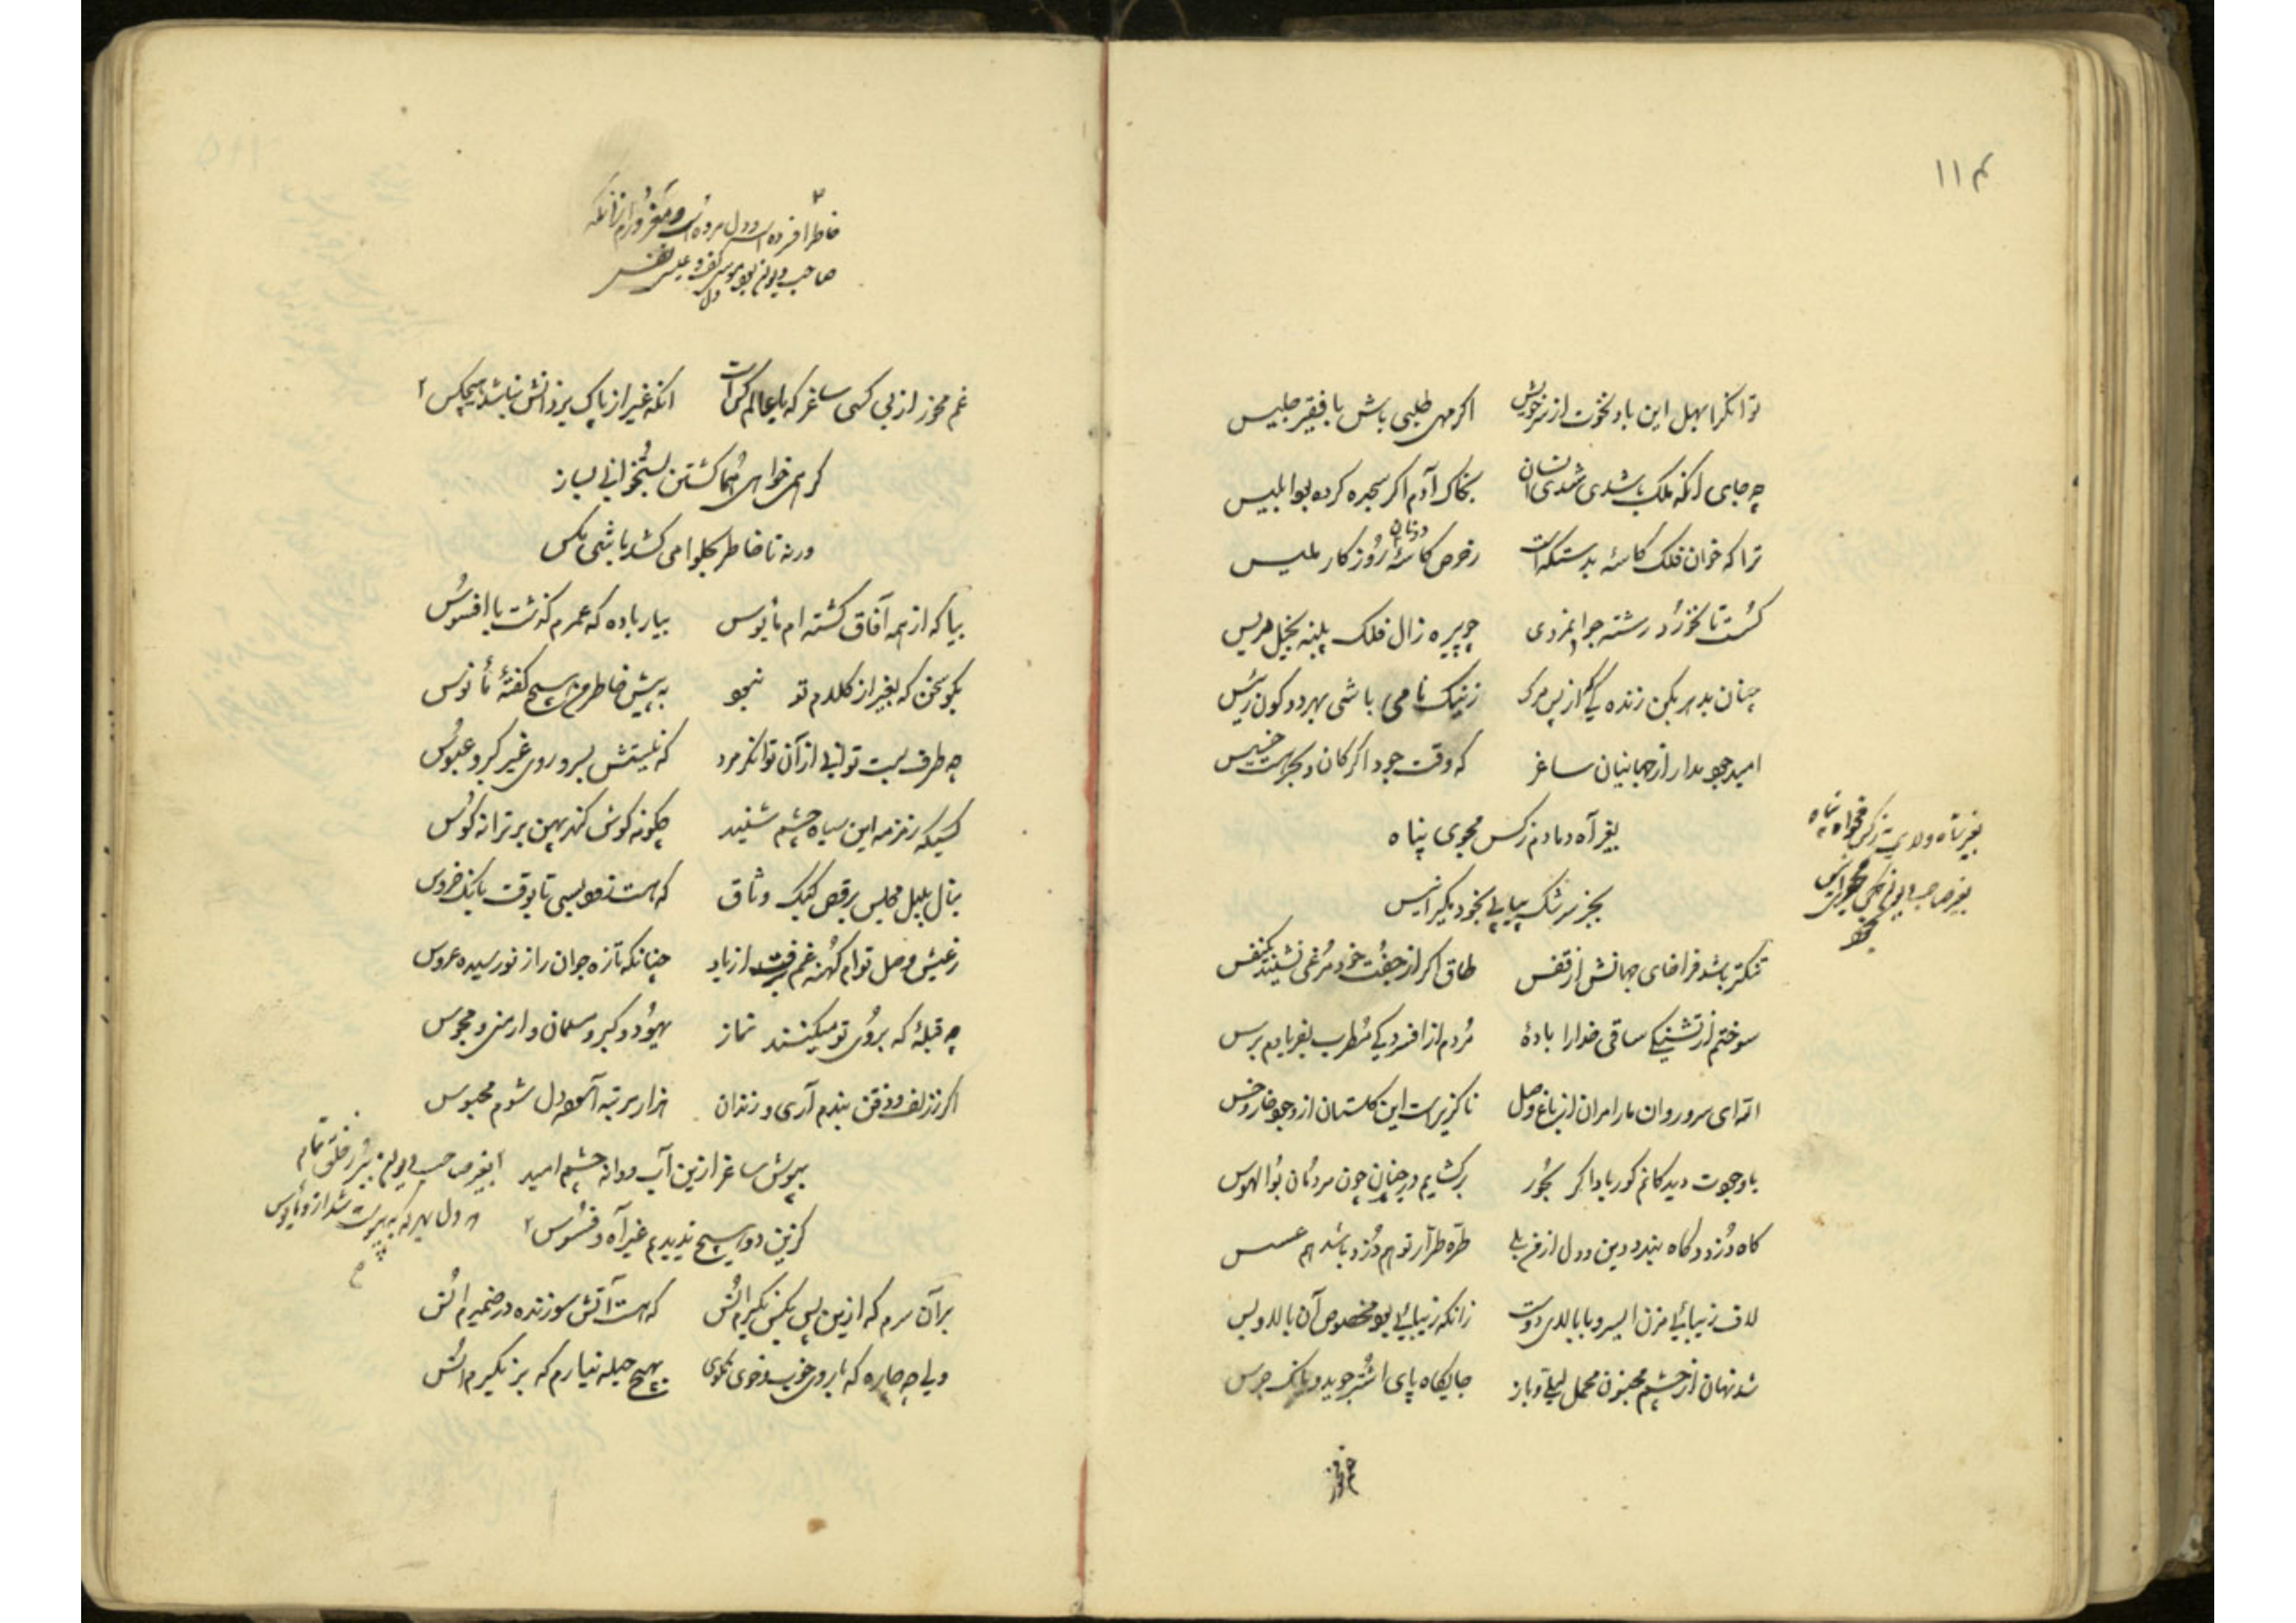 ۱۱۴
توانگرا بهل این باد نخوت از سر خویش اگر مهی طلبی باش با فقیر جلیس
چه جای آنکه ملک باشدی شدی انسان بخاک آدم اگر سجده کرده بود ابلیس
ترا که خوان فلک کاسه بدستکه است ز حرص کاسهٔ دونان روزکار ملیس
کسست تا نخورد رشته جوانمردی چو پیره زال فلک پنبه بخیل مریس
چنان بدهر بکن زنده کی که از پس مرک ز نیک نامی باشی بهر دو کون رئیس
امید جود مدار از جهانیان ساغر که وقت جود اکر کان و بحر هست خسیس
بغیر آه دمادم ز کس مجوی پناه
بجز سرشک پیاپی بخود مکیر انیس
بغیر شاه ولایت ز کس مخواه پناه
بغیر صاحب دیوان
تنکتر باشد فراخای جهانش از قفس طاق اکر از جفت خود مرغی نشیند یکنفس
سوختم از تشنکی ساقی خدارا بادهٔ مردم از افسردکی مطرب بفریادم برس
ای سرو روان مارا مران از باغ وصل ناکزیر است این کلستان از وجود خار و خس
با وجودت دیدکانم کور بادا کر بحور برکشایم در جنان چون مردمان بوالهوس
کاه دزدد کاه بندد دین و دل از هر طره طرار تو هم دزد باشد هم عسس
لاف زیبائی مزن ای سرو با بالای دوست زانکه زیبائی بود مخصوص آن بالا و بس
شد نهان از چشم مجنون محمل لیلی و باز جایکاه پای اشتر جوید و بانک جرس
خاطرا افسرده است و دل مرده است و مغرورم از آنکه
صاحب دیوان بود موسی کف و عیسی نفس
غم مخور از بی کسی ساغر که با عالم کس است آنکه غیر از پاک یزدانش نباشد هیچکس
کر همی خواهی هما کشتن بستخوانی بساز
ورنه تا خاطر بحلوا می کشد باشی مکس
بیا که از همه آفاق کشته ام مأیوس بیار باده که عمرم کذشت با افسوس
بکو سخن که بغیر از کلام تو نبود به پیش خاطر من هیچ کفتهٔ مأنوس
چه طرف بست توانی از آن توانکر مرد که نیستش بسر و روی غیر کبر و عبوس
کسیکه زمزمه این سیاه چشم شنید چکونه کوش کند بهین بر ترانه کوس
بنال بلبل مجلس برقص کبک وثاق که هست تا بوقت بانک خروس
ز عیش وصل توام کهنه غم برفت از یاد چنانکه تازه جوان را ز نو رسیده عروس
چه قبلهٔ که بروی تو میکنند نماز یهود و کبر و مسلمان و ارمنی و مجوس
اکر ز زلف و ذقن بندم آری و زندان هزار مرتبه دل شوم محبوس
بپوش ساغر ازین آب و دانه چشم امید
کزین دو هیچ ندیدم غیر آه و فسوس
بر آن سرم که ازین پس بکس نکیرم انس که هست آتش سوزنده در ضمیرم انس
ولی چه چاره که با روی خوب و خوی نکوی بهیچ حیله نیارم که بر نکیرم انس